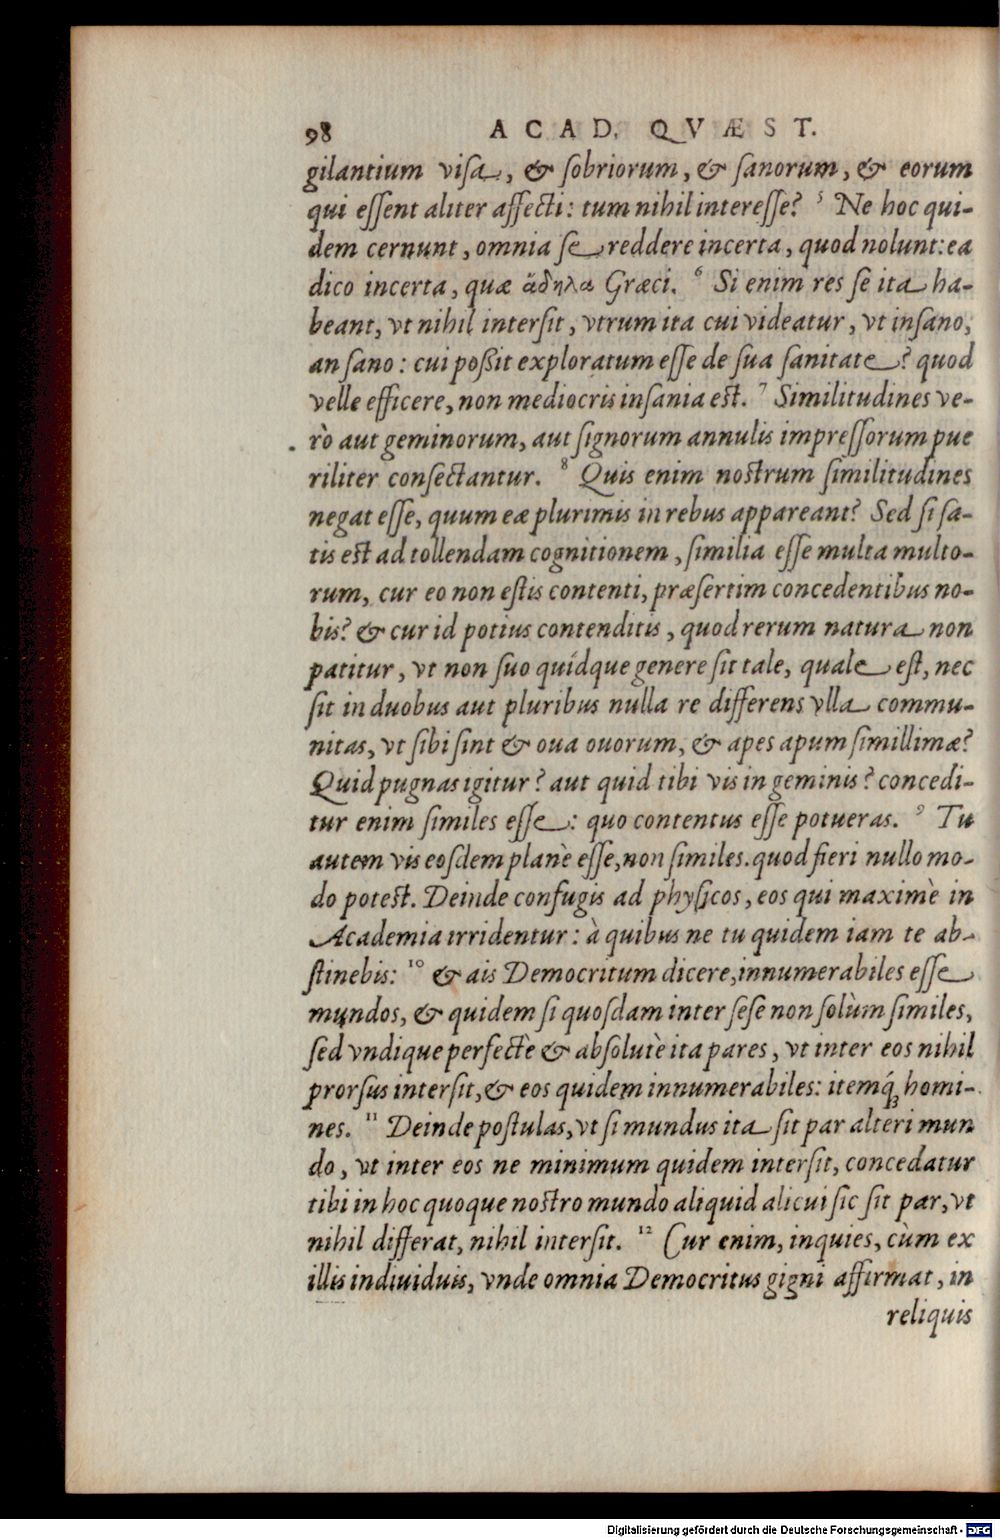 98 ACAD. QVÆST.
gilantium visa, & sobriorum, & sanorum, & eorum
qui essent aliter affecti: tum nihil interesse? 5 Ne hoc qui-
dem cernunt, omnia se reddere incerta, quod nolunt: ea
dico incerta, quæ ἄδηλα Græci. 6 Si enim res se ita ha-
beant, vt nihil intersit, vtrum ita cui videatur, vt insano,
an sano: cui poßit exploratum esse de sua sanitate? quod
velle efficere, non mediocris insania est. 7 Similitudines ve-
rò aut geminorum, aut signorum annulis impressorum pue
riliter consectantur. 8 Quis enim nostrum similitudines
negat esse, quum eæ plurimis in rebus appareant? Sed si sa-
tis est ad tollendam cognitionem, similia esse multa multo-
rum, cur eo non estis contenti, præsertim concedentibus no-
bis? & cur id potius contenditis, quod rerum natura non
patitur, vt non suo quidque genere sit tale, quale est, nec
sit in duobus aut pluribus nulla re differens vlla commu-
nitas, vt sibi sint & oua ouorum, & apes apum simillimæ?
Quid pugnas igitur? aut quid tibi vis in geminis? concedi-
tur enim similes esse: quo contentus esse potueras. 9 Tu
autem vis eosdem planè esse, non similes. quod fieri nullo mo-
do potest. Deinde confugis ad physicos, eos qui maximè in
Academia irridentur: à quibus ne tu quidem iam te ab-
stinebis: 10 & ais Democritum dicere, innumerabiles esse
mundos, & quidem si quosdam inter sese non solùm similes,
sed vndique perfectè & absolutè ita pares, vt inter eos nihil
prorsus intersit, & eos quidem innumerabiles: itemq́ꝫ homi-
nes. 11 Deinde postulas, vt si mundus ita sit par alteri mun
do, vt inter eos ne minimum quidem intersit, concedatur
tibi in hoc quoque nostro mundo aliquid alicui sic sit par, vt
nihil differat, nihil intersit. 12 Cur enim, inquies, cùm ex
illis indiuiduis, vnde omnia Democritus gigni affirmat, in
reliquis
Digitalisierung gefördert durch die Deutsche Forschungsgemeinschaft - DFG